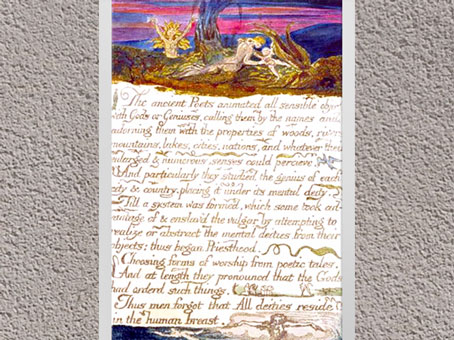 The ancient Poets animated all sensible obje
with Gods or Geniuses, calling them by the names and
adorning them with the properties of woods, rivers
mountains, lakes, cities, nations, and whatever their
enlarged & numerous senses could percieve.
And particularly they studied the genius of each
city & country, placing it under its mental deity.
Till a system was formed, which some took ad-
vantage of & enslav'd the vulgar by attempting to
realize or abstract the mental deities from their
objects: thus began Priesthood.
Choosing forms of worship from poetic tales.
And at length they pronounced that the Gods
had orderd such things.
Thus men forgot that All deities reside
in the human breast.